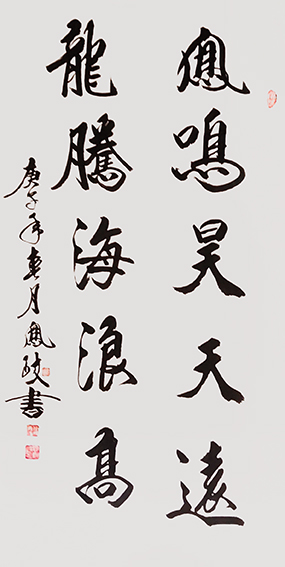 鳳鳴昊天遠
龍騰海浪高
庚子年春月鳳玻書